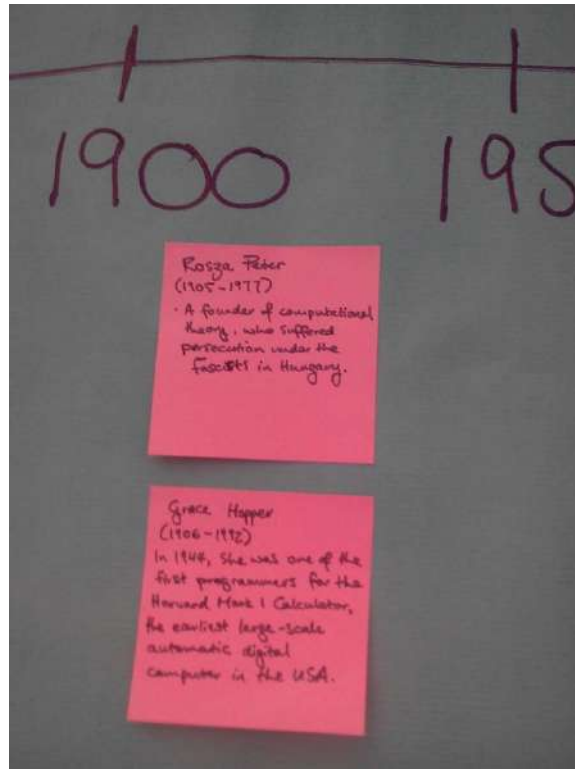 1900
195
Rosza Peter
(1905-1977)
· A founder of computational
theory, who suffered
persecution under the
fascists in Hungary.
Grace Hopper
(1906-1992)
In 1944, she was one of the
first programmers for the
Harvard Mark 1 Calculator,
the earliest large-scale
automatic digital
computer in the USA.